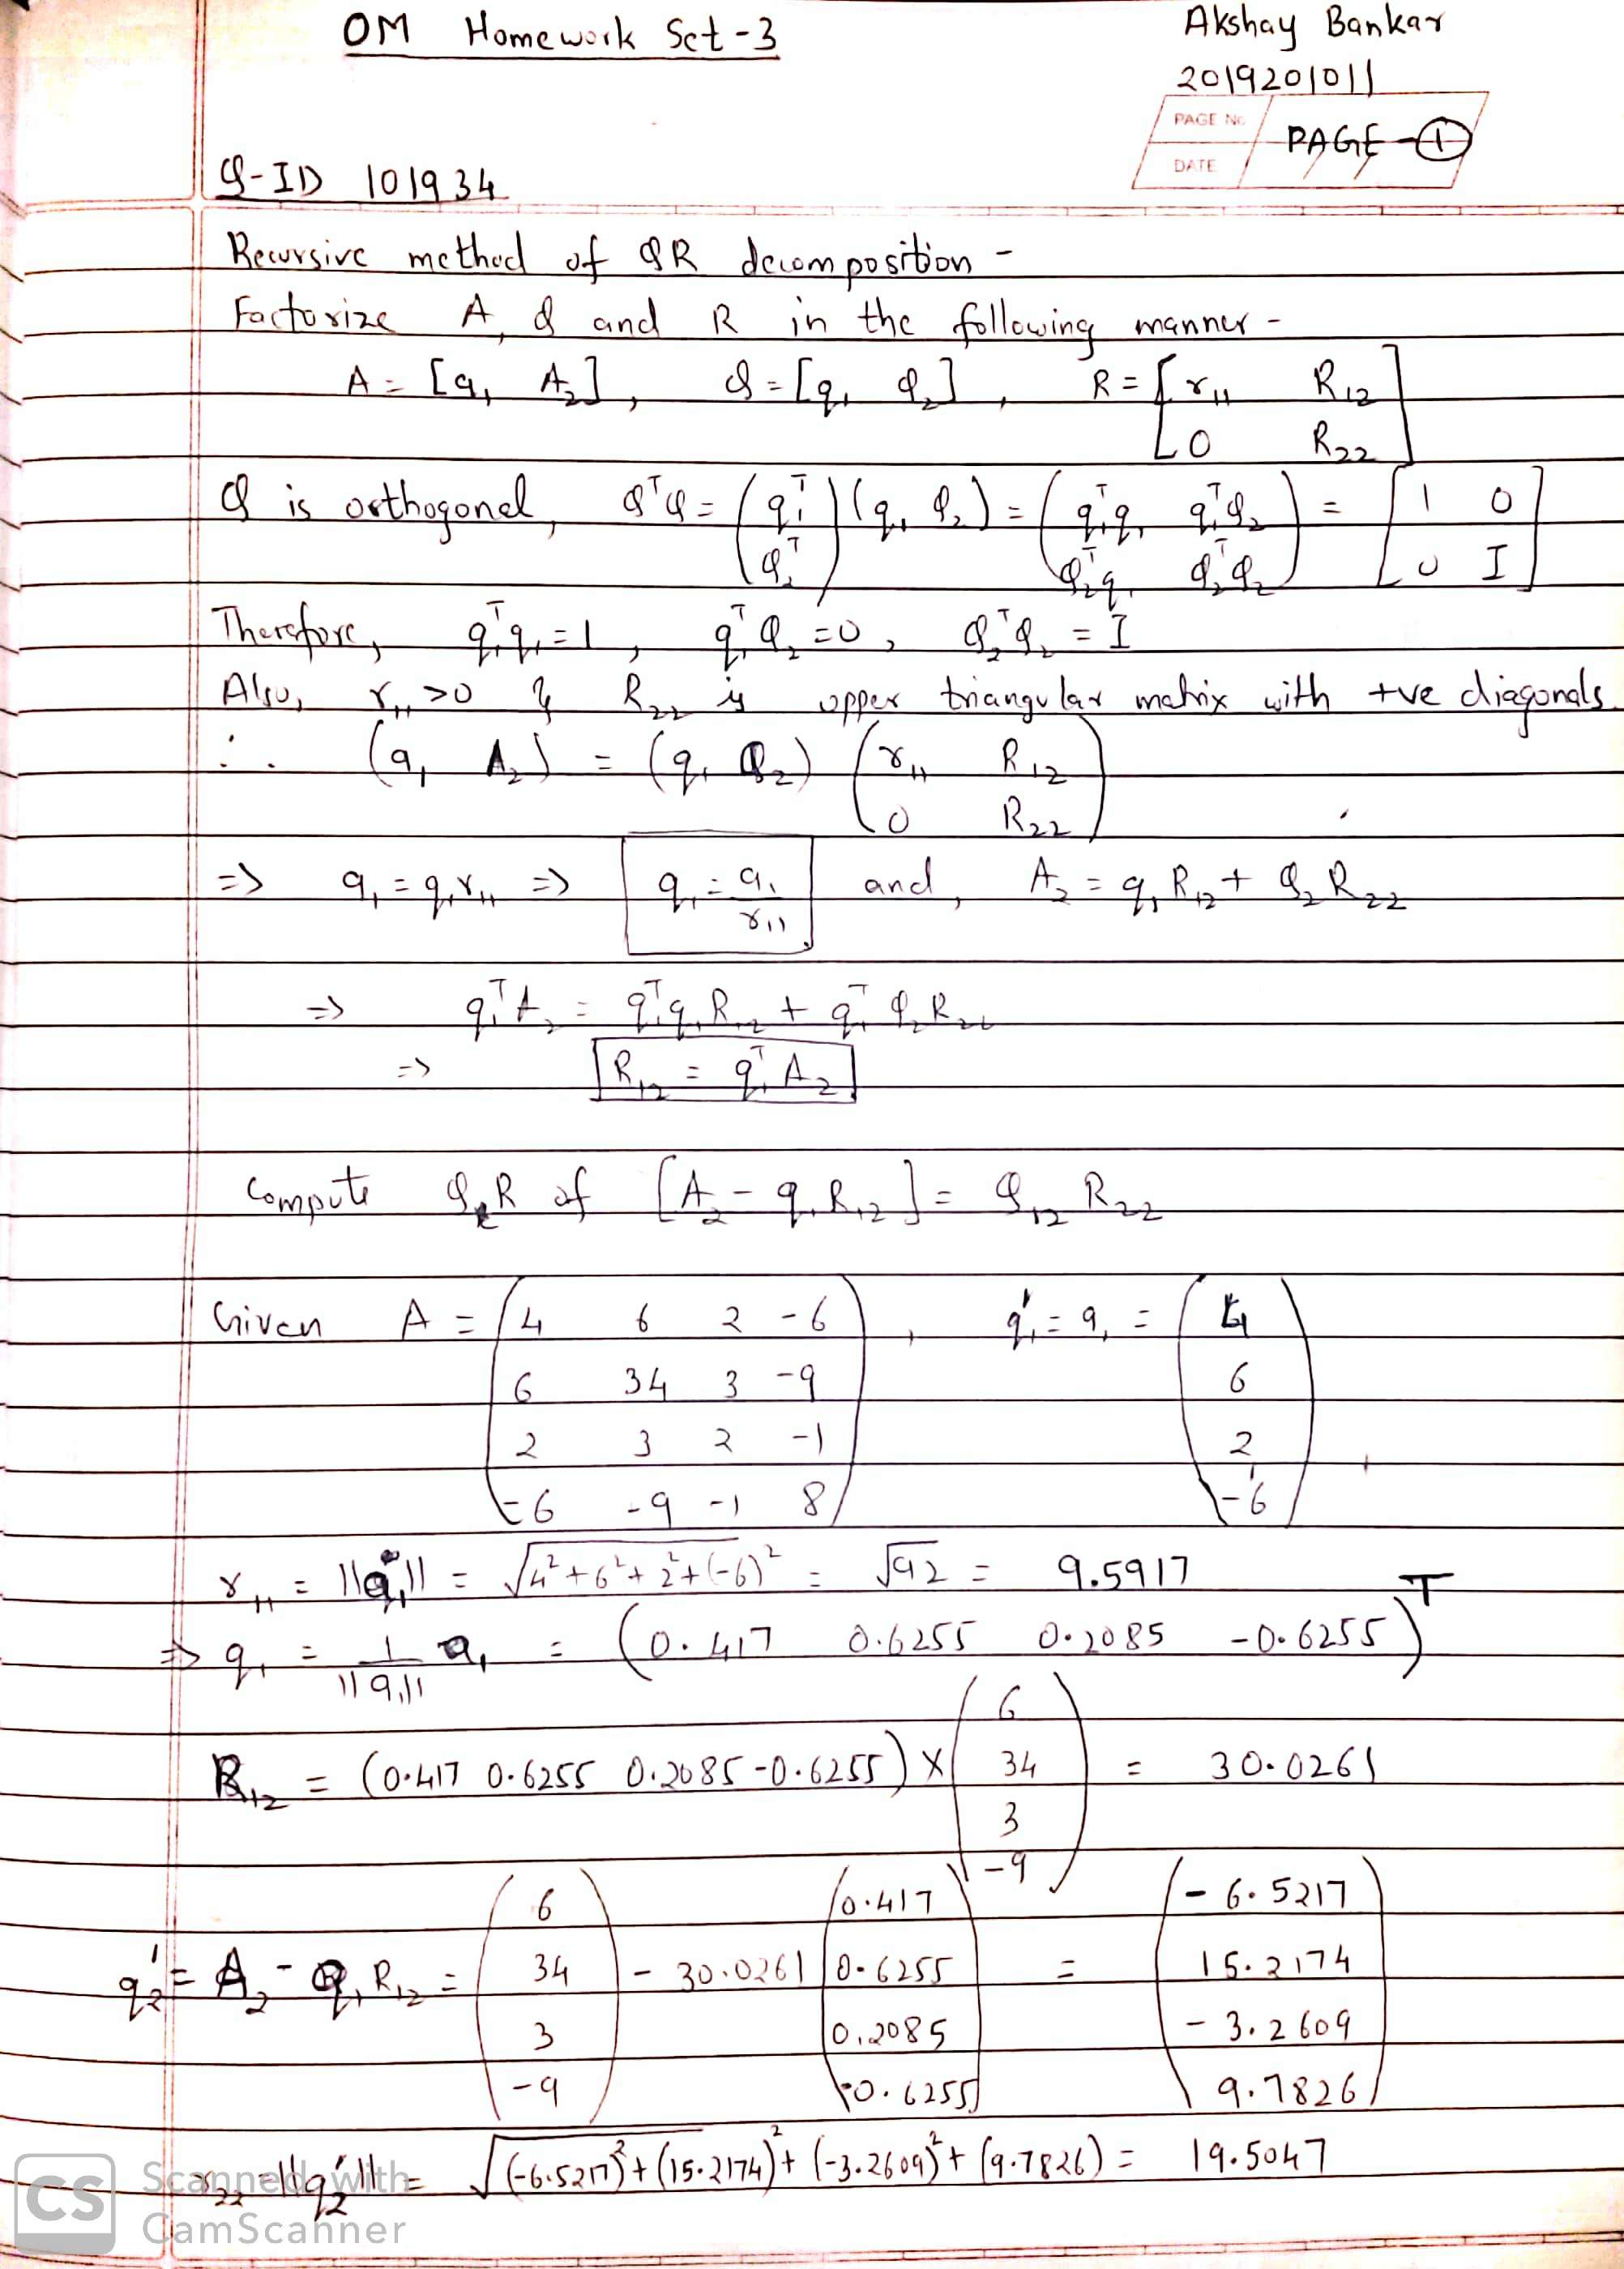 OM Homework Set-3
Akshay Bankar
2019201011
PAGE No
PAGE-①
DATE
Q-ID 101934
Recursive method of QR decomposition -
Factorize A, Q and R in the following manner -
A = [a₁ A₂], Q = [q₁ Q₂], R = [r₁₁ R₁₂
0 R₂₂]
Q is orthogonal, QᵀQ = (q₁ᵀ Q₂ᵀ) (q₁ Q₂) = (q₁ᵀq₁ q₁ᵀQ₂
Q₂ᵀq₁ Q₂ᵀQ₂) = [1 0
0 I]
Therefore, q₁ᵀq₁ = 1, q₁ᵀQ₂ = 0, Q₂ᵀQ₂ = I
Also, r₁₁ > 0 & R₂₂ is upper triangular matrix with +ve diagonals
∴ (a₁ A₂) = (q₁ Q₂) (r₁₁ R₁₂
0 R₂₂)
=> a₁ = q₁r₁₁ => q₁ = a₁/r₁₁ and, A₂ = q₁R₁₂ + Q₂R₂₂
=> q₁ᵀA₂ = q₁ᵀq₁R₁₂ + q₁ᵀQ₂R₂₂
=> R₁₂ = q₁ᵀA₂
Compute QR of [A₂ - q₁R₁₂] = Q₁₂ R₂₂
Given A = (4 6 2 -6, q₁' = a₁ = (4
6 34 3 -9 6
2 3 2 -1 2
-6 -9 -1 8) -6)
r₁₁ = ||a₁|| = √4²+6²+2²+(-6)² = √92 = 9.5917
=> q₁ = 1/||a₁|| a₁ = (0.417 0.6255 0.2085 -0.6255)ᵀ
R₁₂ = (0.417 0.6255 0.2085 -0.6255) × (6 34 3 -9) = 30.0261
q₂' = A₂ - q₁R₁₂ = (6 34 3 -9) - 30.0261 (0.417 0.6255 0.2085 -0.6255) = (-6.5217 15.2174 -3.2609 9.7826)
r₂₂ = ||q₂'|| = √(-6.5217)²+(15.2174)²+(-3.2609)²+(9.7826) = 19.5047
CS
Scanned with
CamScanner